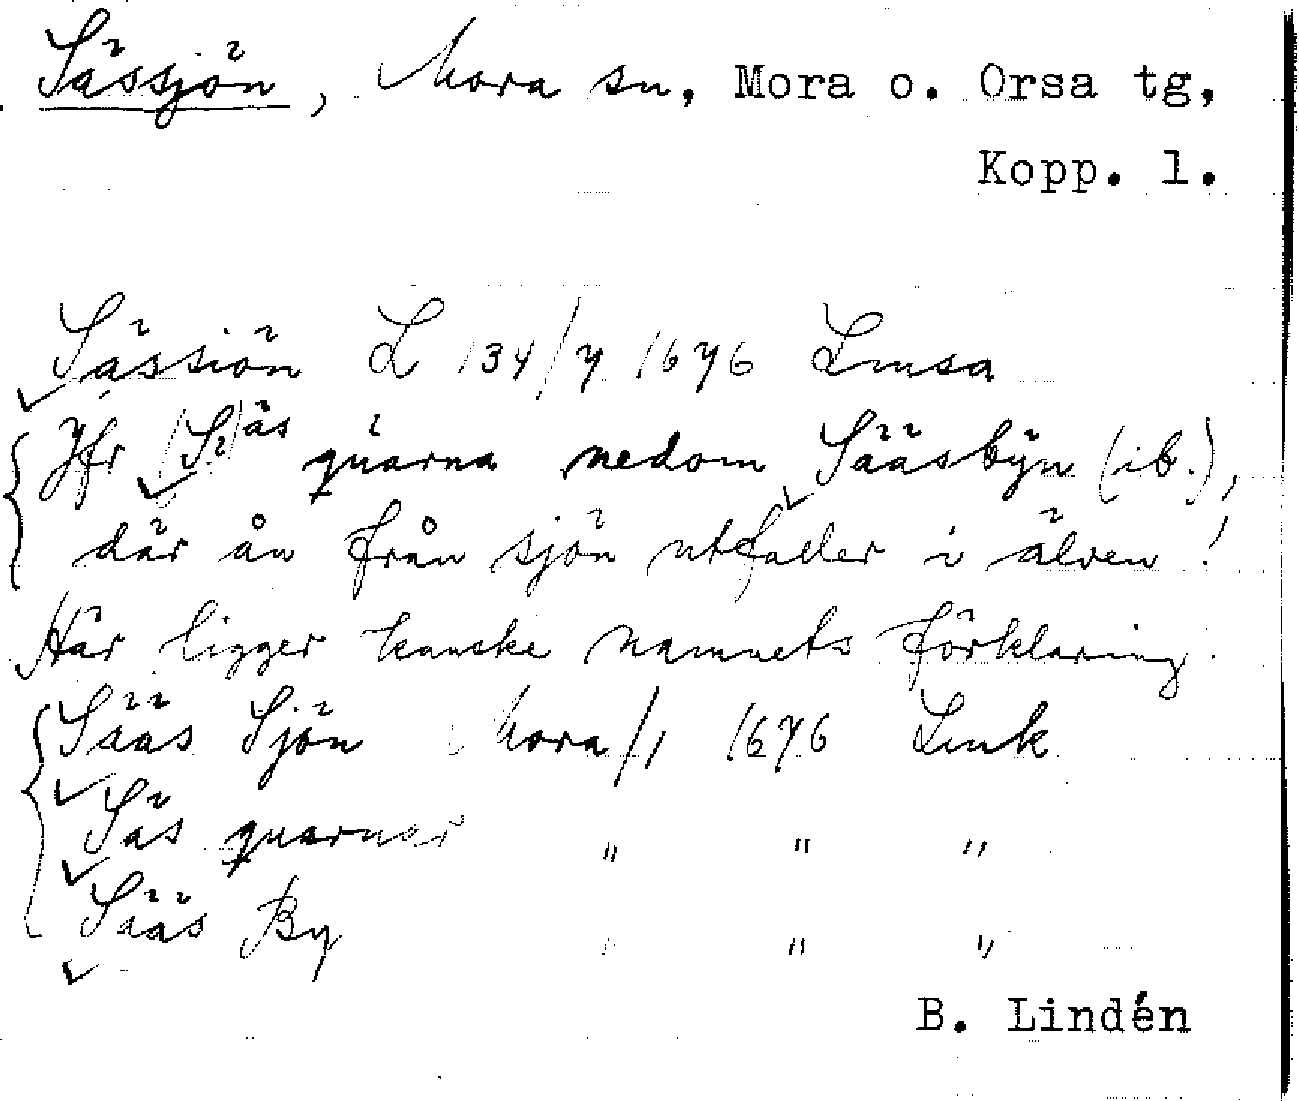 Sässjön, Mora sn, Mora o. Orsa tg,
Kopp. l.
Sässiön L 134/7 1676 Lmsa
Jfr (S:)äs quarna nedom Sääsbÿn (ib.),
där ån från sjön utfaller i älven!
Här ligger kanske namnets förklaring.
Sääs Sjön Mora/1 1676 Lmk
Säs quarnar " " "
Sääs By " " "
B. Lindén